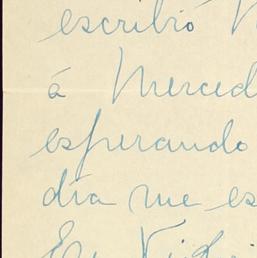 escribió
á Merced
esperando
día me es
En